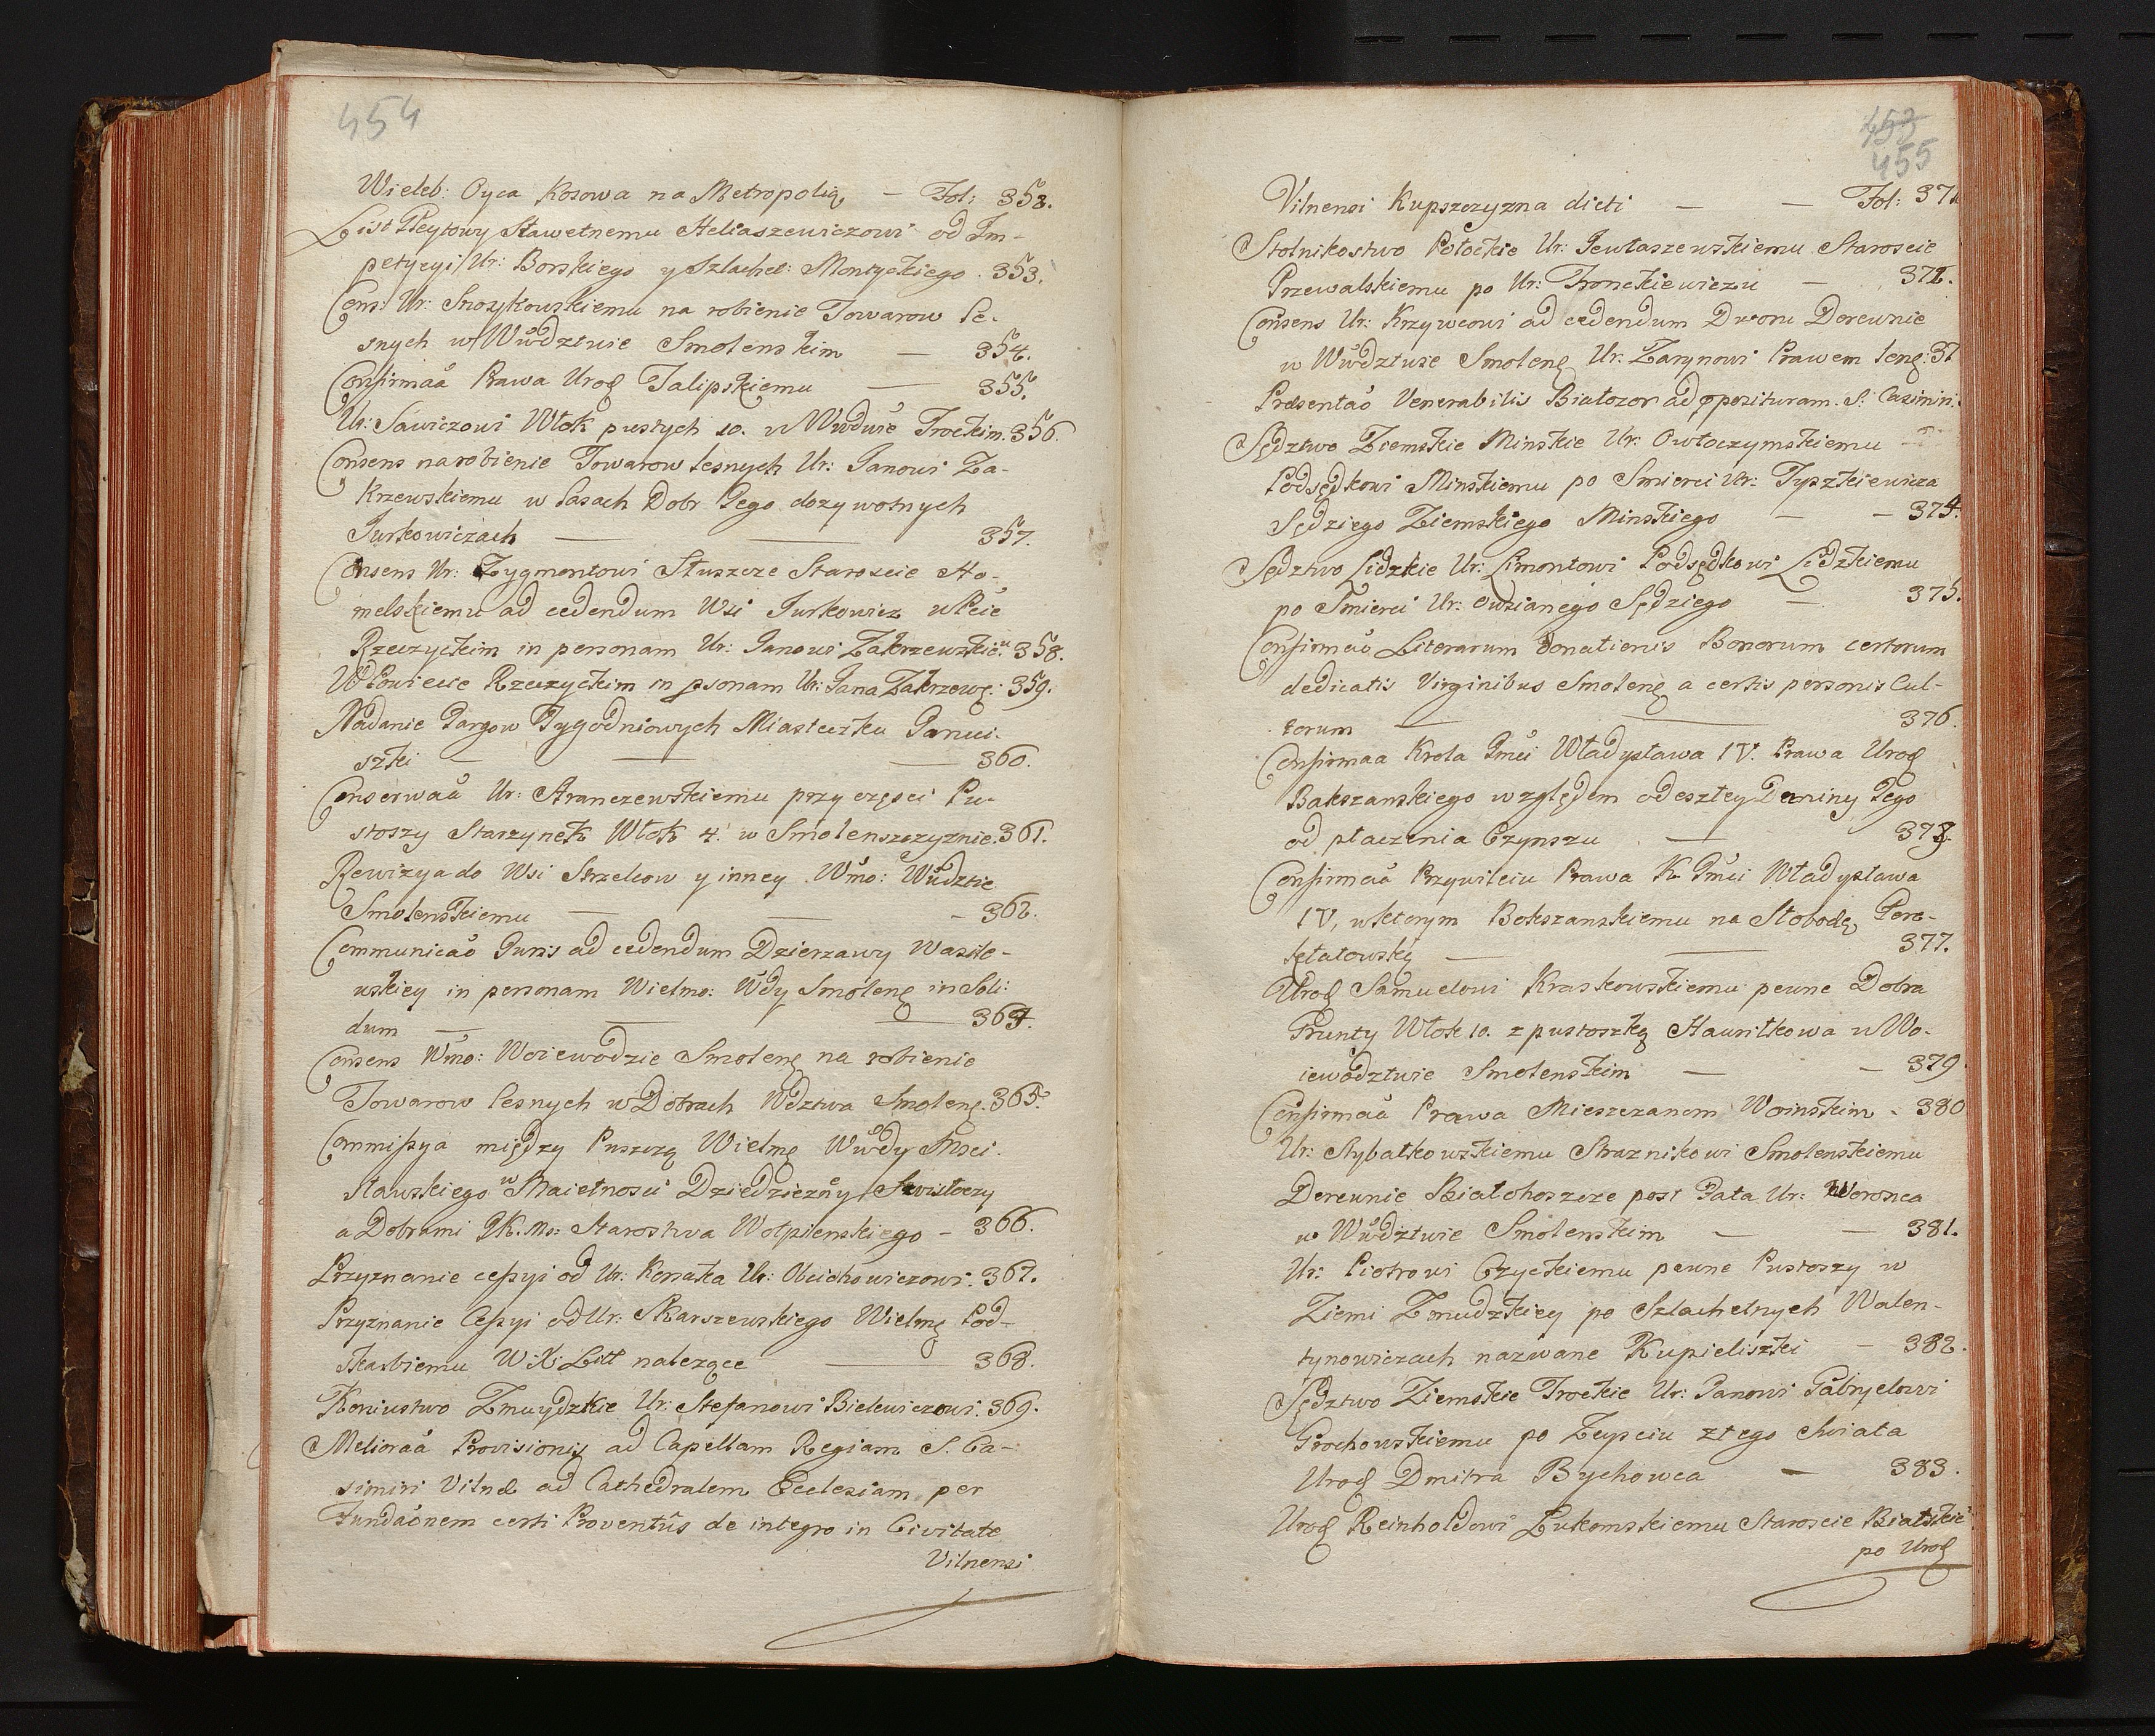 454
Wieleb: Oyca Kosowa na Metropolią — Fol: 352.
List Gleytowy Sławetnemu Heliaszewiczowi od Im-
petycyi Ur: Borskiego y Szlachet: Montyckiego. 353.
Cons: Ur: Snoykowskiemu na robienie Towarow Le-
snych w Wwdztwie Smolenskim — 354.
Confirmaã Prawa Urog Talipskiemu — 355.
Ur: Sawiczowi Włok pustych 10. w Wwdwie Trockim. 356.
Consens na robienie Towarow lesnych Ur: Janowi Za-
krzewskiemu w Lasach Dobr Jego dozywotnych
Jurkowiczach — — 357.
Consens Ur: Zygmontowi Słuszcze Staroscie Ho-
melskiemu ad cedendum Wsi Jurkowicz w Pcie
Rzeczyckim in personam Ur: Janowi Zakrzewskie: 358.
W Powiecie Rzeczyckim in psonam Ur: Jana Zakrzewg: 359.
Nadanie Targow Tygodniowych Miasteczku Janui-
szki — — — 360.
Conserwaã Ur: Aranczewskiemu przy częsci Pu-
stoszy Starzynek Włok 4. w Smolenszczyznie. 361.
Rewizya do Wsi Strzelcow y inney Wmo: Wwdzie
Smolenskiemu — — — 362.
Communicaõ Juris ad cedendum Dzierzawy Wasilo-
wskiey in personam Wielmo: Wdy Smoleng in Soli:
dum — — — 364.
Consens Wmo: Woiewodzie Smoleng na robienie
Towarow lesnych w Dobrach Wdztwa Smoleng. 365.
Commissya między Puszczą Wielmg Wwdy Msci-
sławskiego w Maietnosci Dziedziczney Swisłoczy
a Dobrami JK. Mo: Starostwa Wołpienskiego — 366.
Przyznanie cessyi od Ur: Korsaka Ur: Obuchowiczowi. 367.
Przyznanie Cessyi od Ur: Skarszewskiego Wielmg Pod-
skarbiemu W.X. Litt nalezące — 368.
Koniustwo Zmuydzkie Ur: Stefanowi Bielewiczowi. 369.
Melioraã Provisionis ad Capellam Regiam S. Ca-
simiri Vilnæ ad Cathedralem Ecclesiam per
Fundaõnem certi Proventûs de integro in Civitate
Vilnensi
453
455
Vilnensi Kupszczyzna dicti — — Fol: 371
Stolnikostwo Połockie Ur: Jewłaszewskiemu Staroscie
Przewalskiemu po Ur: Fronckiewiczu — 372.
Consens Ur: Krzywcowi ad cedendum Dworu Derewnie
w Wwdztwie Smoleng Ur: Zarynowi Prawem leng: 37
Præsentaõ Venerabilis Białozor ad ppozituram S: Casimiri.
Sędztwo Ziemskie Minskie Ur: Owłoczymskiemu —
Podsędkowi Minskiemu po Smierci Ur: Tyszkiewicza
Sędziego Ziemskiego Minskiego — — 374.
Sędztwo Lidzkie Ur: Limontowi Podsędkowi Lidzkiemu
po Smierci Ur: Owsianego Sędziego — 375.
Confirmaõ Literarum Donationis Bonorum certorum
dedicatis Virginibus Smoleng a certis personis Cul-
torum — — 376.
Confirmaa Krola Jmci Władysława IV. Prawa Urog
Bakszanskiego względem odeszłey Daniny Jego
od płaczenia Czynszu — 378.
Confirmaã Przywileiu Prawa K Jmci Władysława
IV, w ktorym Bokszanskiemu na Słobodę Pere-
kłatowską — — 377.
Urog Samuelowi Kraskowskiemu pewne Dobra
Grunty Włok 10. z pustoszką Hawriłkowa w Wo-
iewodztwie Smolenskim — — 379
Confirmaã Prawa Mieszczanom Woinskim — 380
Ur: Rybałtkowskiemu Straznikowi Smolenskiemu
Derewnie Białohoszcze post Fata Ur: Woronca
w Wwdztwie Smolenskim — — 381.
Ur: Piotrowi Czyckiemu pewne Pustoszy w
Ziemi Zmudzkiey po Szlachetnych Walen-
tynowiczach nazwane Kupieliszki — 382.
Sędztwo Ziemskie Trockie Ur: Panowi Gabryelowi
Grochowskiemu po Zeysciu z tego Swiata
Urog Dmitra Bychowca — 383.
Urog Reinholdowi Łukomskiemu Staroscie Białskie
po Urog